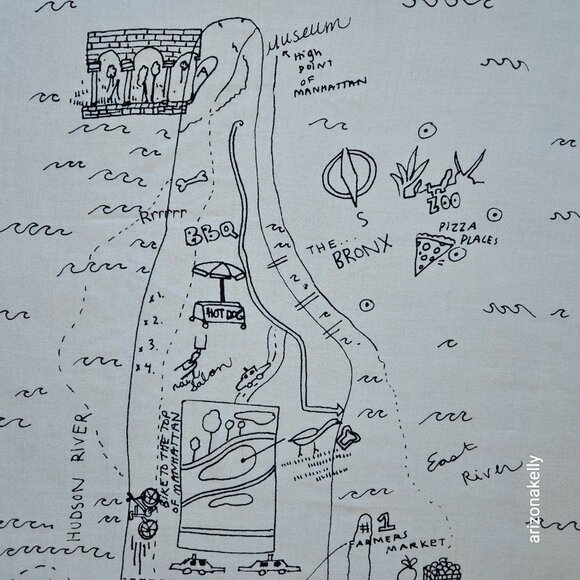 Museum
High
POINT
OF
MANHATTAN
Rrrrrr
BBQ
ZOO
PIZZA
PLACES
S
THE...
BRONX
HOT DOG
x 1.
x 2.
x 3.
x 4.
nail Salon
HUDSON RIVER
BIKE TO THE TOP
OF MANHATTAN
East
River
#1
FARMERS
MARKET
arizonakelly